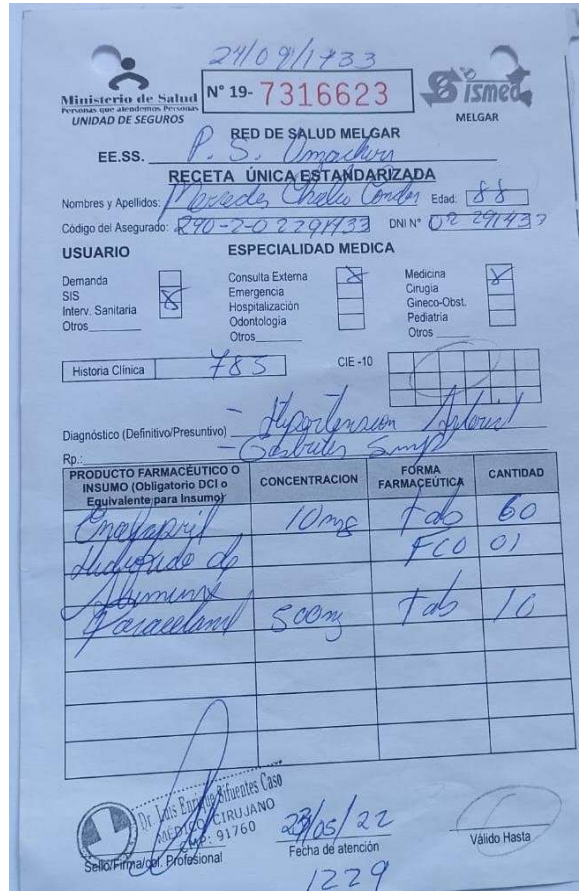 24/09/1933
Ministerio de Salud
Personas que atendemos Personas
UNIDAD DE SEGUROS
N° 19- 7316623
Sismed
MELGAR
RED DE SALUD MELGAR
EE.SS. P. S. Umachiri
RECETA ÚNICA ESTANDARIZADA
Nombres y Apellidos: Mercedes Condor Edad: 88
Código del Asegurado: 290-2-02291433 DNI N° 02291433
USUARIO ESPECIALIDAD MEDICA
Demanda Consulta Externa X Medicina X
SIS X Emergencia Cirugia
Interv. Sanitaria Hospitalización Gineco-Obst.
Otros Odontologia Pediatria
Otros Otros
Historia Clínica 785 CIE -10
Diagnóstico (Definitivo/Presuntivo) - Hipertension Arterial
Rp.: - Gastritis
PRODUCTO FARMACÉUTICO O INSUMO (Obligatorio DCI o Equivalente para Insumo) CONCENTRACION FORMA FARMACEÚTICA CANTIDAD
Enalapril 10mg tab 60
Hidroxido de FCO 01
Aluminio
Paracetamol 500mg Tab 10
Dr. Luis Enrique Sifuentes Caso
MEDICO CIRUJANO
CMP: 91760
Sello/Firma/col. Profesional
23/05/22
Fecha de atención
Válido Hasta
1229